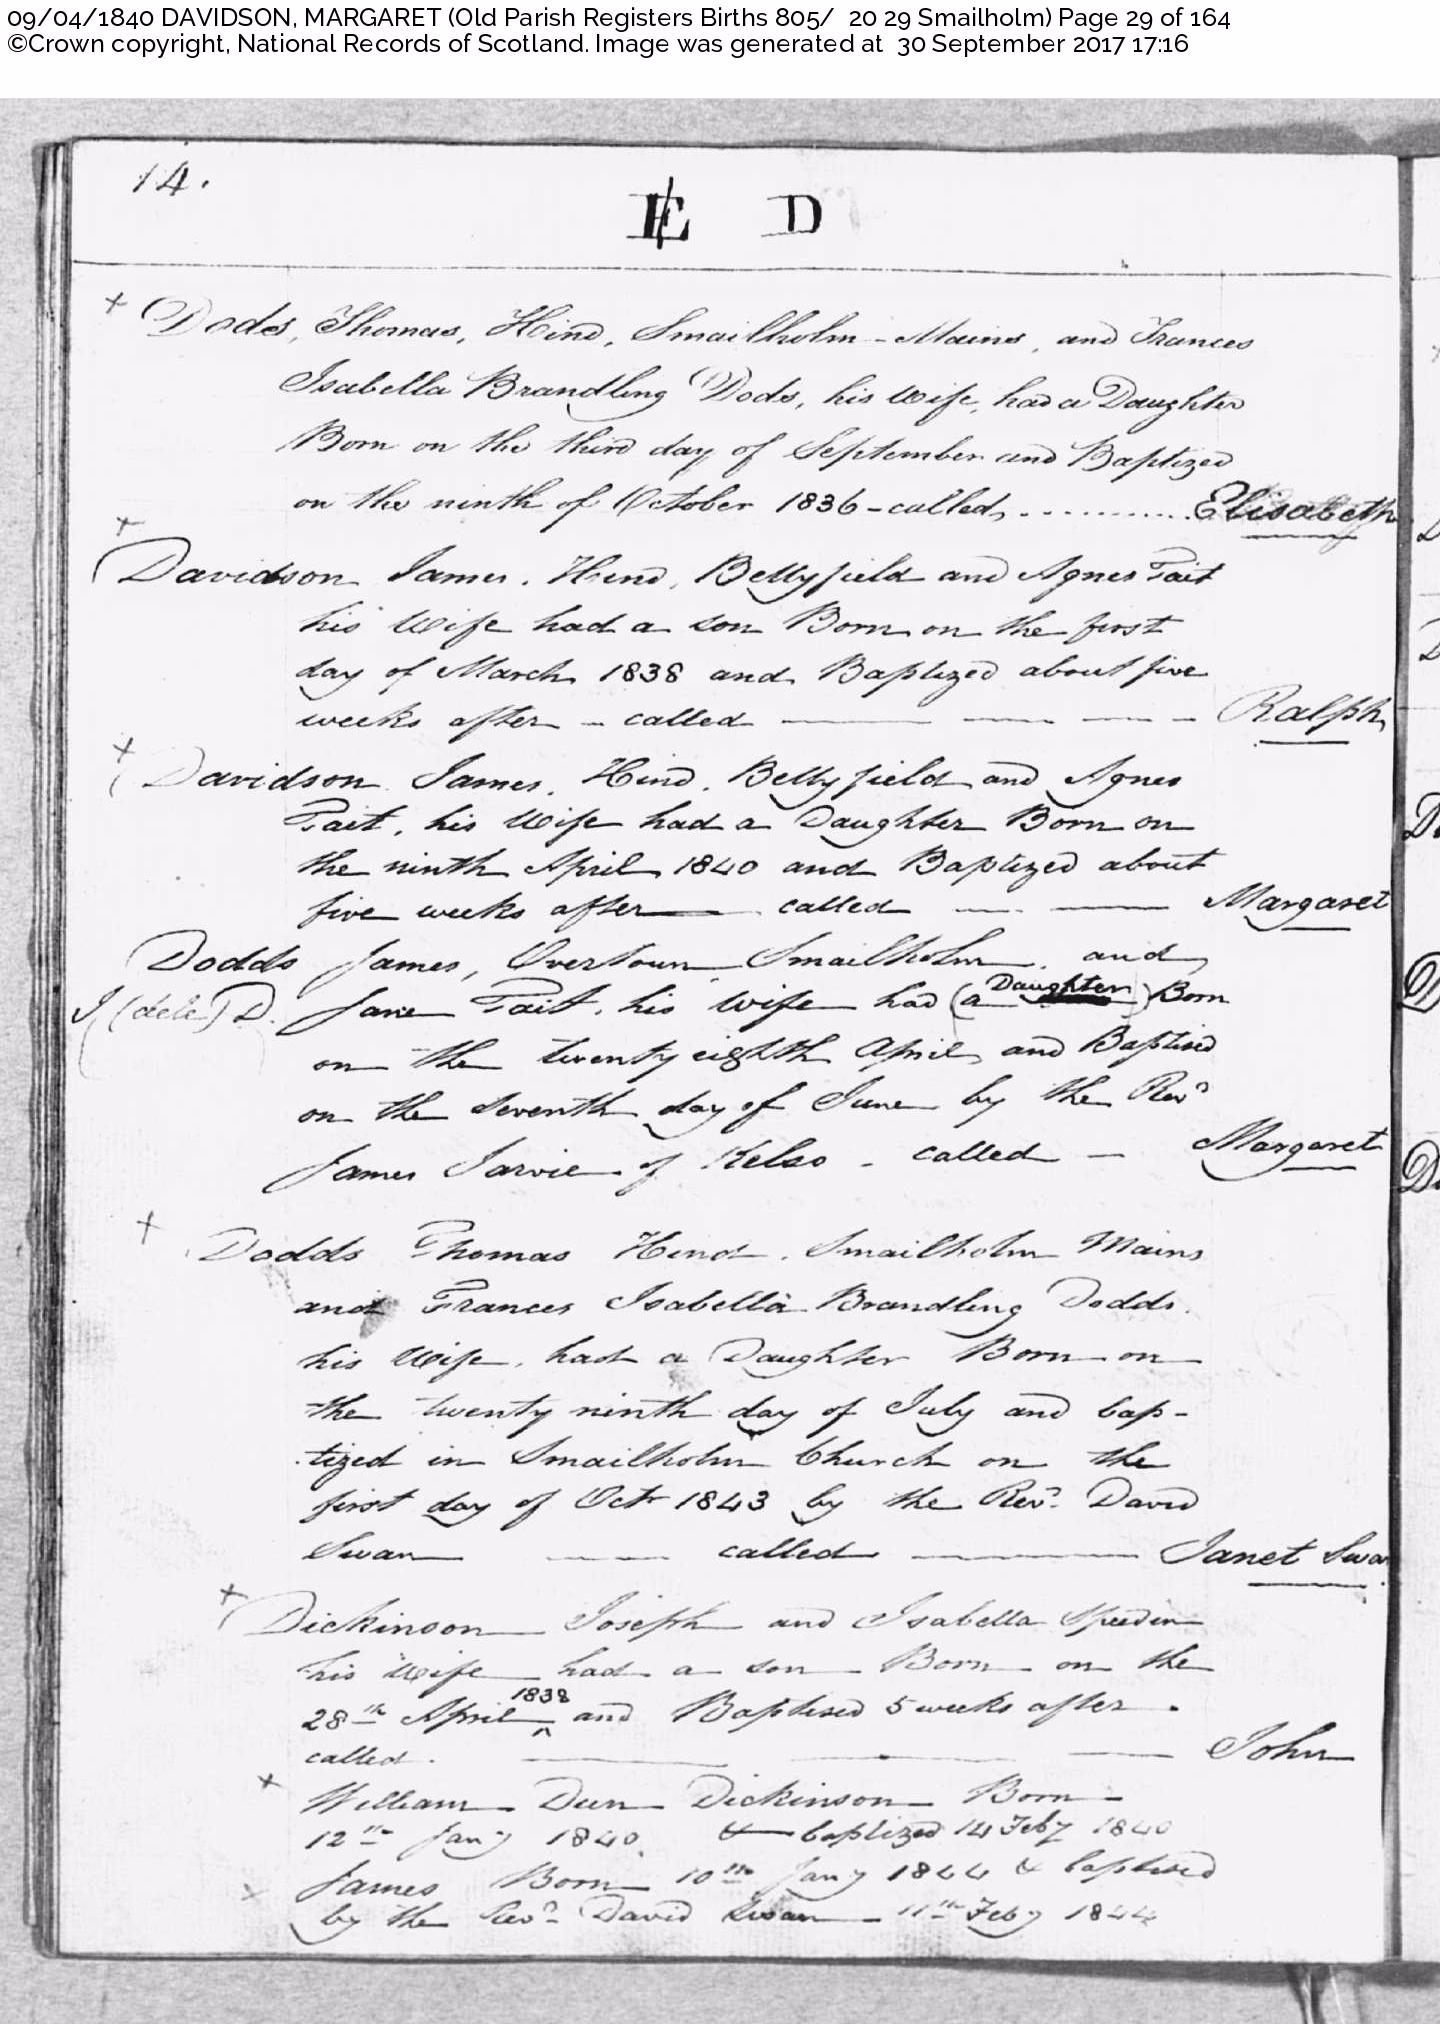 09/04/1840 DAVIDSON, MARGARET (Old Parish Registers Births 805/ 20 29 Smailholm) Page 29 of 164
©Crown copyright, National Records of Scotland. Image was generated at 30 September 2017 17:16
14.
E D
Dods, Thomas, Hind, Smailholm-Mains, and Frances
Isabella Brandling Dods, his Wife, had a Daughter
Born on the third day of September and Baptized
on the ninth of October 1836 - called, ........... Elisabeth
Davidson James, Hind, Bettyfield and Agnes Tait
his Wife had a son Born on the first
day of March 1838 and Baptized about five
weeks after - called Ralph
Davidson James, Hind, Bettyfield and Agnes
Tait, his Wife had a Daughter Born on
the ninth April 1840 and Baptized about
five weeks after called Margaret
Dodds James, Overtoun Smailholm, and
J (dele) D. Jane Tait, his Wife had (a Daughter) Born
on the twenty eighth April and Baptised
on the seventh day of June by the Revd
James Jarvie of Kelso - called - Margaret
Dodds Thomas Hind, Smailholm Mains
and Frances Isabella Brandling Dodds.
his Wife, had a Daughter Born on
the twenty ninth day of July and bap-
tized in Smailholm Church on the
first day of Octr 1843 by the Revd. David
Swan called Janet Swa
Dickinson Joseph and Isabella Speedin
his Wife had a son Born on the
28th April 1838 and Baptised 5 weeks after.
called. John
William Dun Dickinson Born
12th Jany 1840. & baptized 14 Feby 1840
James Born 10th Jany 1844 & baptised
by the Revd. David Swan - 11th Feby 1844